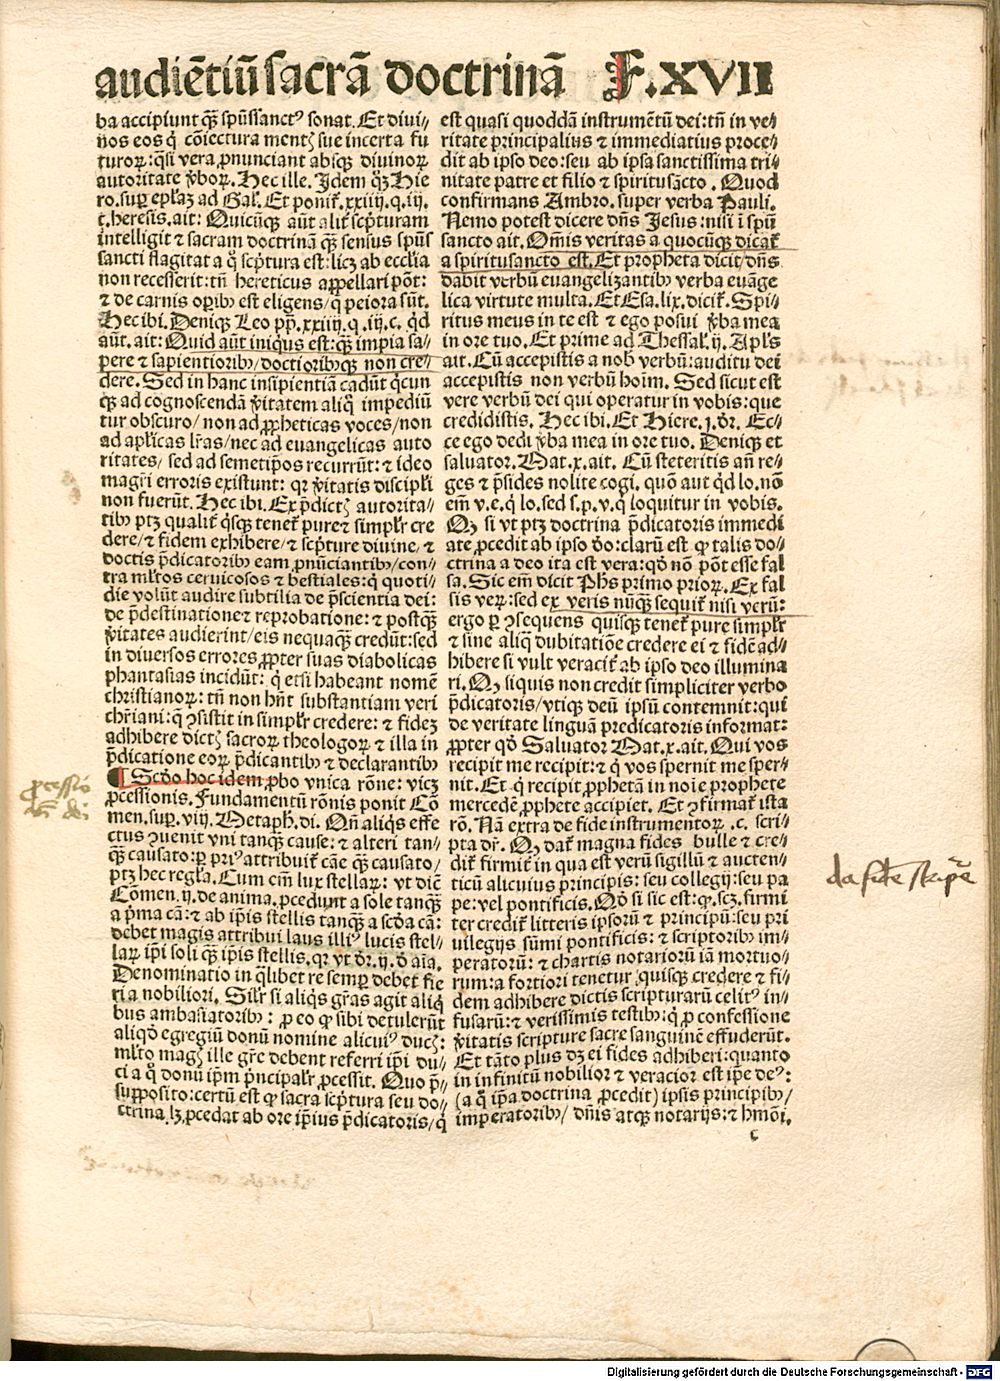 audiētiū sacrā doctrinā F.XVII
ba accipiunt qȝ spūssanct⁹ sonat. Et diui⸗
nos eos q̇ cōiectura mentꝭ sue incerta fu
turoꝝ: q̄si vera ꝓnunciant absqȝ diuinoꝝ
autoritate v̓boꝝ. Hec ille. Idem q̊ȝ Hie
ro. suꝑ epl̄aȝ ad Gal. Et ponit̄. xxiiij. q. iij.
c. heresis. ait: Quicūqȝ aūt alit̓ scpturam
intelligit ⁊ sacram doctrinā qȝ sensus spūs
sancti flagitat a q̊ scptura est: licȝ ab eccl̄ia
non recesserit: tn̄ hereticus appellari pōt:
⁊ de carnis oꝑibꝰ est eligens/ q̄ peiora sūt.
Hec ibi. Deniqȝ Leo pp. xxiiij. q. iij. c. q̇d
aūt. ait: Quid aūt iniqus est: qȝ impia sa⸗
pere ⁊ sapientioribꝰ/ doctioribꝰqȝ non cre⸗
dere. Sed in hanc insipientiā cadūt q̇cun
qȝ ad cognoscendā v̓itatem aliq̊ impediū
tur obscuro/ non ad ꝓpheticas voces/ non
ad apl̄icas lr̄as/ nec ad euangelicas auto
ritates/ sed ad semetip̄os recurrūt: ⁊ ideo
magr̄i erroris existunt: qꝛ v̓itatis discipl̄i
non fuerūt. Hec ibi. Ex p̄dictꝭ autorita⸗
tibꝰ ptȝ qualit̓ q̇sqȝ tenet̄ pure ⁊ simpl̄r cre
dere/ ⁊ fidem exhibere/ ⁊ scpture diuine/ ⁊
doctis p̄dicatoribꝰ eam ꝓnūciantibꝰ/ con⸗
tra ml̄tos ceruicosos ⁊ bestiales: q̇ quoti⸗
die volūt audire subtilia de p̄scientia dei:
de p̄destinatione ⁊ reprobatione: ⁊ postqȝ
v̓itates audierint/ eis nequaqȝ credūt: sed
in diuersos errores ꝓpter suas diabolicas
phantasias incidūt: q̇ etsi habeant nomē
christianoꝝ: tn̄ non hn̄t substantiam veri
chr̄iani: q̄ ꝯsistit in simpl̄r credere: ⁊ fideȝ
adhibere dictꝭ sacroꝝ theologoꝝ ⁊ illa in
p̄dicatione eoꝝ p̄dicantibꝰ ⁊ declarantibꝰ
¶ Scd̓o hoc idem ꝓbo vnica rōne: vicȝ
ꝓcessionis. Fundamentū rōnis ponit Cō
men. suꝑ. viij. Metaph. di. Qn̄ aliq̇s effe
ctus ꝯuenit vni tanqȝ cause: ⁊ alteri tan⸗
qȝ causato: ꝑ pri⁹ attribuit̄ cāe qȝ causato/
ptȝ hec regl̄a. Cum em̄ lux stellaꝝ: vt dic̄
Cōmen. ij. de anima. ꝓcedunt a sole tanqȝ
a p̄ma cā: ⁊ ab ip̄is stellis tanqȝ a scd̓a cā:
debet magis attribui laus illi⁹ lucis stel⸗
laꝝ ip̄i soli qȝ ip̄is stellis. qꝛ vt dr̄. ij. d̓ aīa.
Denominatio in q̄libet re semꝑ debet̄ fie
ri a nobiliori. Sil̄r si aliq̇s gr̄as agit aliq̇
bus ambasiatoribꝰ: ꝓ eo ꝙ sibi detulerūt
aliqd̓ egregiū donū nomine alicui⁹ ducꝭ:
ml̄to magꝭ ille gr̄e debent referri ip̄i du⸗
ci a q̊ donū ip̄m p̄ncipal̄r ꝓcessit. Quo p̄⸗
supposito: certū est ꝙ sacra scptura seu do⸗
ctrina lȝ ꝓcedat ab ore ip̄ius p̄dicatoris/ q̇
est quasi quoddā instrumētū dei: tn̄ in ve⸗
ritate principalius ⁊ immediatius proce⸗
dit ab ipso deo: seu ab ipsa sanctissima tri⸗
nitate patre et filio ⁊ spiritusācto. Quod
confirmans Ambro. super verba Pauli.
Nemo potest dicere dn̄s Jesus: nisi ī spū
sancto ait. Om̄is veritas a quocūqȝ dicat̄
a spiritusancto est. Et propheta dicit/ dn̄s
dabit verbū euangelizantibꝰ verba euāge
lica virtute multa. Et Esa. lix. dicit̄. Spi⸗
ritus meus in te est ⁊ ego posui v̓ba mea
in ore tuo. Et prime ad Thessal. ij. Apl̄s
ait. Cū accepistis a nob verbū: auditu dei
accepistis non verbū hoim̄. Sed sicut est
vere verbū dei qui operatur in vobis: que
credidistis. Hec ibi. Et Hiere. j. dr̄. Ec⸗
ce ego dedi v̓ba mea in ore tuo. Deniqȝ et
saluator. Mat. x. ait. Cū steteritis an̄ re⸗
ges ⁊ p̄sides nolite cogi. quō aut q̇d lo. nō
em̄ v. e. q̇ lo. sed s. p. v. q̇ loquitur in vobis.
Qȝ si vt ptȝ doctrina p̄dicatoris immedi
ate ꝓcedit ab ipso d̓o: clarū est ꝙ talis do⸗
ctrina a deo ita est vera: qd̓ nō pōt esse fal
sa. Sic em̄ dicit Ph̄s primo prioꝝ. Ex fal
sis veꝝ: sed ex veris nūqȝ sequit̄ nisi verū:
ergo ꝑ ꝯsequens quisqȝ tenet̄ pure simpl̄r
⁊ sine aliq̄ dubitatiōe credere ei ⁊ fidē ad⸗
hibere si vult veracit̓ ab ipso deo illumina
ri. Qȝ siquis non credit simpliciter verbo
p̄dicatoris/ vtiqȝ deū ipsū contemnit: qui
de veritate linguā predicatoris informat:
ꝓpter qd̓ Saluator Mat. x. ait. Qui vos
recipit me recipit: ⁊ q̇ vos spernit me sper⸗
nit. Et q̇ recipit ꝓphetā in noīe prophete
mercedē ꝓphete accipiet. Et ꝯfirmat̄ ista
rō. Nā extra de fide instrumentoꝝ. c. scri⸗
pta dr̄. Qȝ dat̄ magna fides bulle ⁊ cre⸗
dit̄ firmit̓ in qua est verū sigillū ⁊ aucten⸗
ticū alicuius principis: seu collegij: seu pa
pe: vel pontificis. Qd̓ si sic est: ꝙ. scȝ. firmi
ter credit̄ litteris ipsorū ⁊ principū: seu pri
uilegijs sūmi pontificis: ⁊ scriptoribꝰ im⸗
peratorū: ⁊ chartis notariorū iā mortuo⸗
rum: a fortiori tenetur quisqȝ credere ⁊ fi⸗
dem adhibere dictis scripturarū celit⁹ in⸗
fusarū: ⁊ verissimis testibꝰ: q̇ ꝓ confessione
v̓itatis scripture sacre sanguinē effuderūt.
Et tāto plus dȝ ei fides adhiberi: quanto
in infinitū nobilior ⁊ veracior est ip̄e de⁹:
(a q̊ ip̄a doctrina ꝓcedit) ipsis principibꝰ/
imperatoribꝰ/ dn̄is atqȝ notarijs: ⁊ hmōi.
c
Digitalisierung gefördert durch die Deutsche Forschungsgemeinschaft - DFG